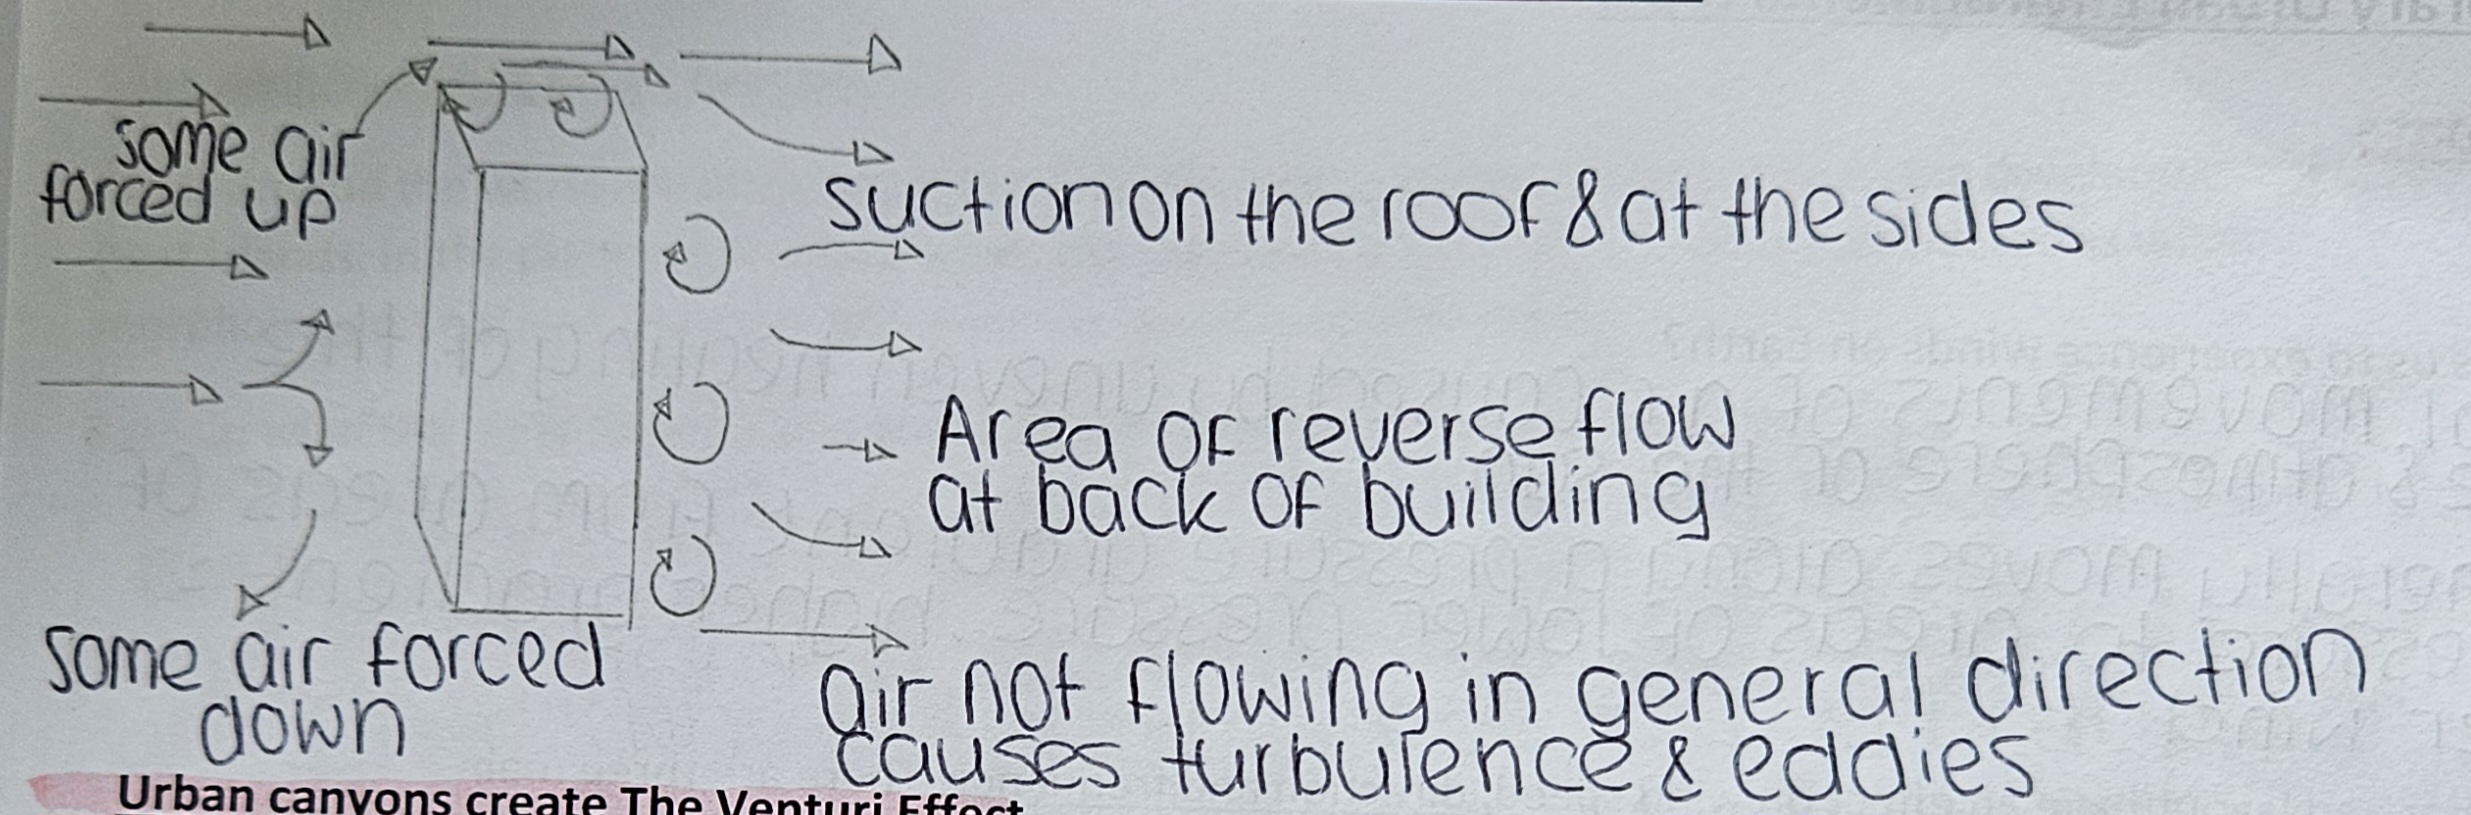 some air
forced up
suction on the roof & at the sides
Area of reverse flow
at back of building
some air forced
down
air not flowing in general direction
causes turbulence & eddies
Urban canyons create The Venturi Effect